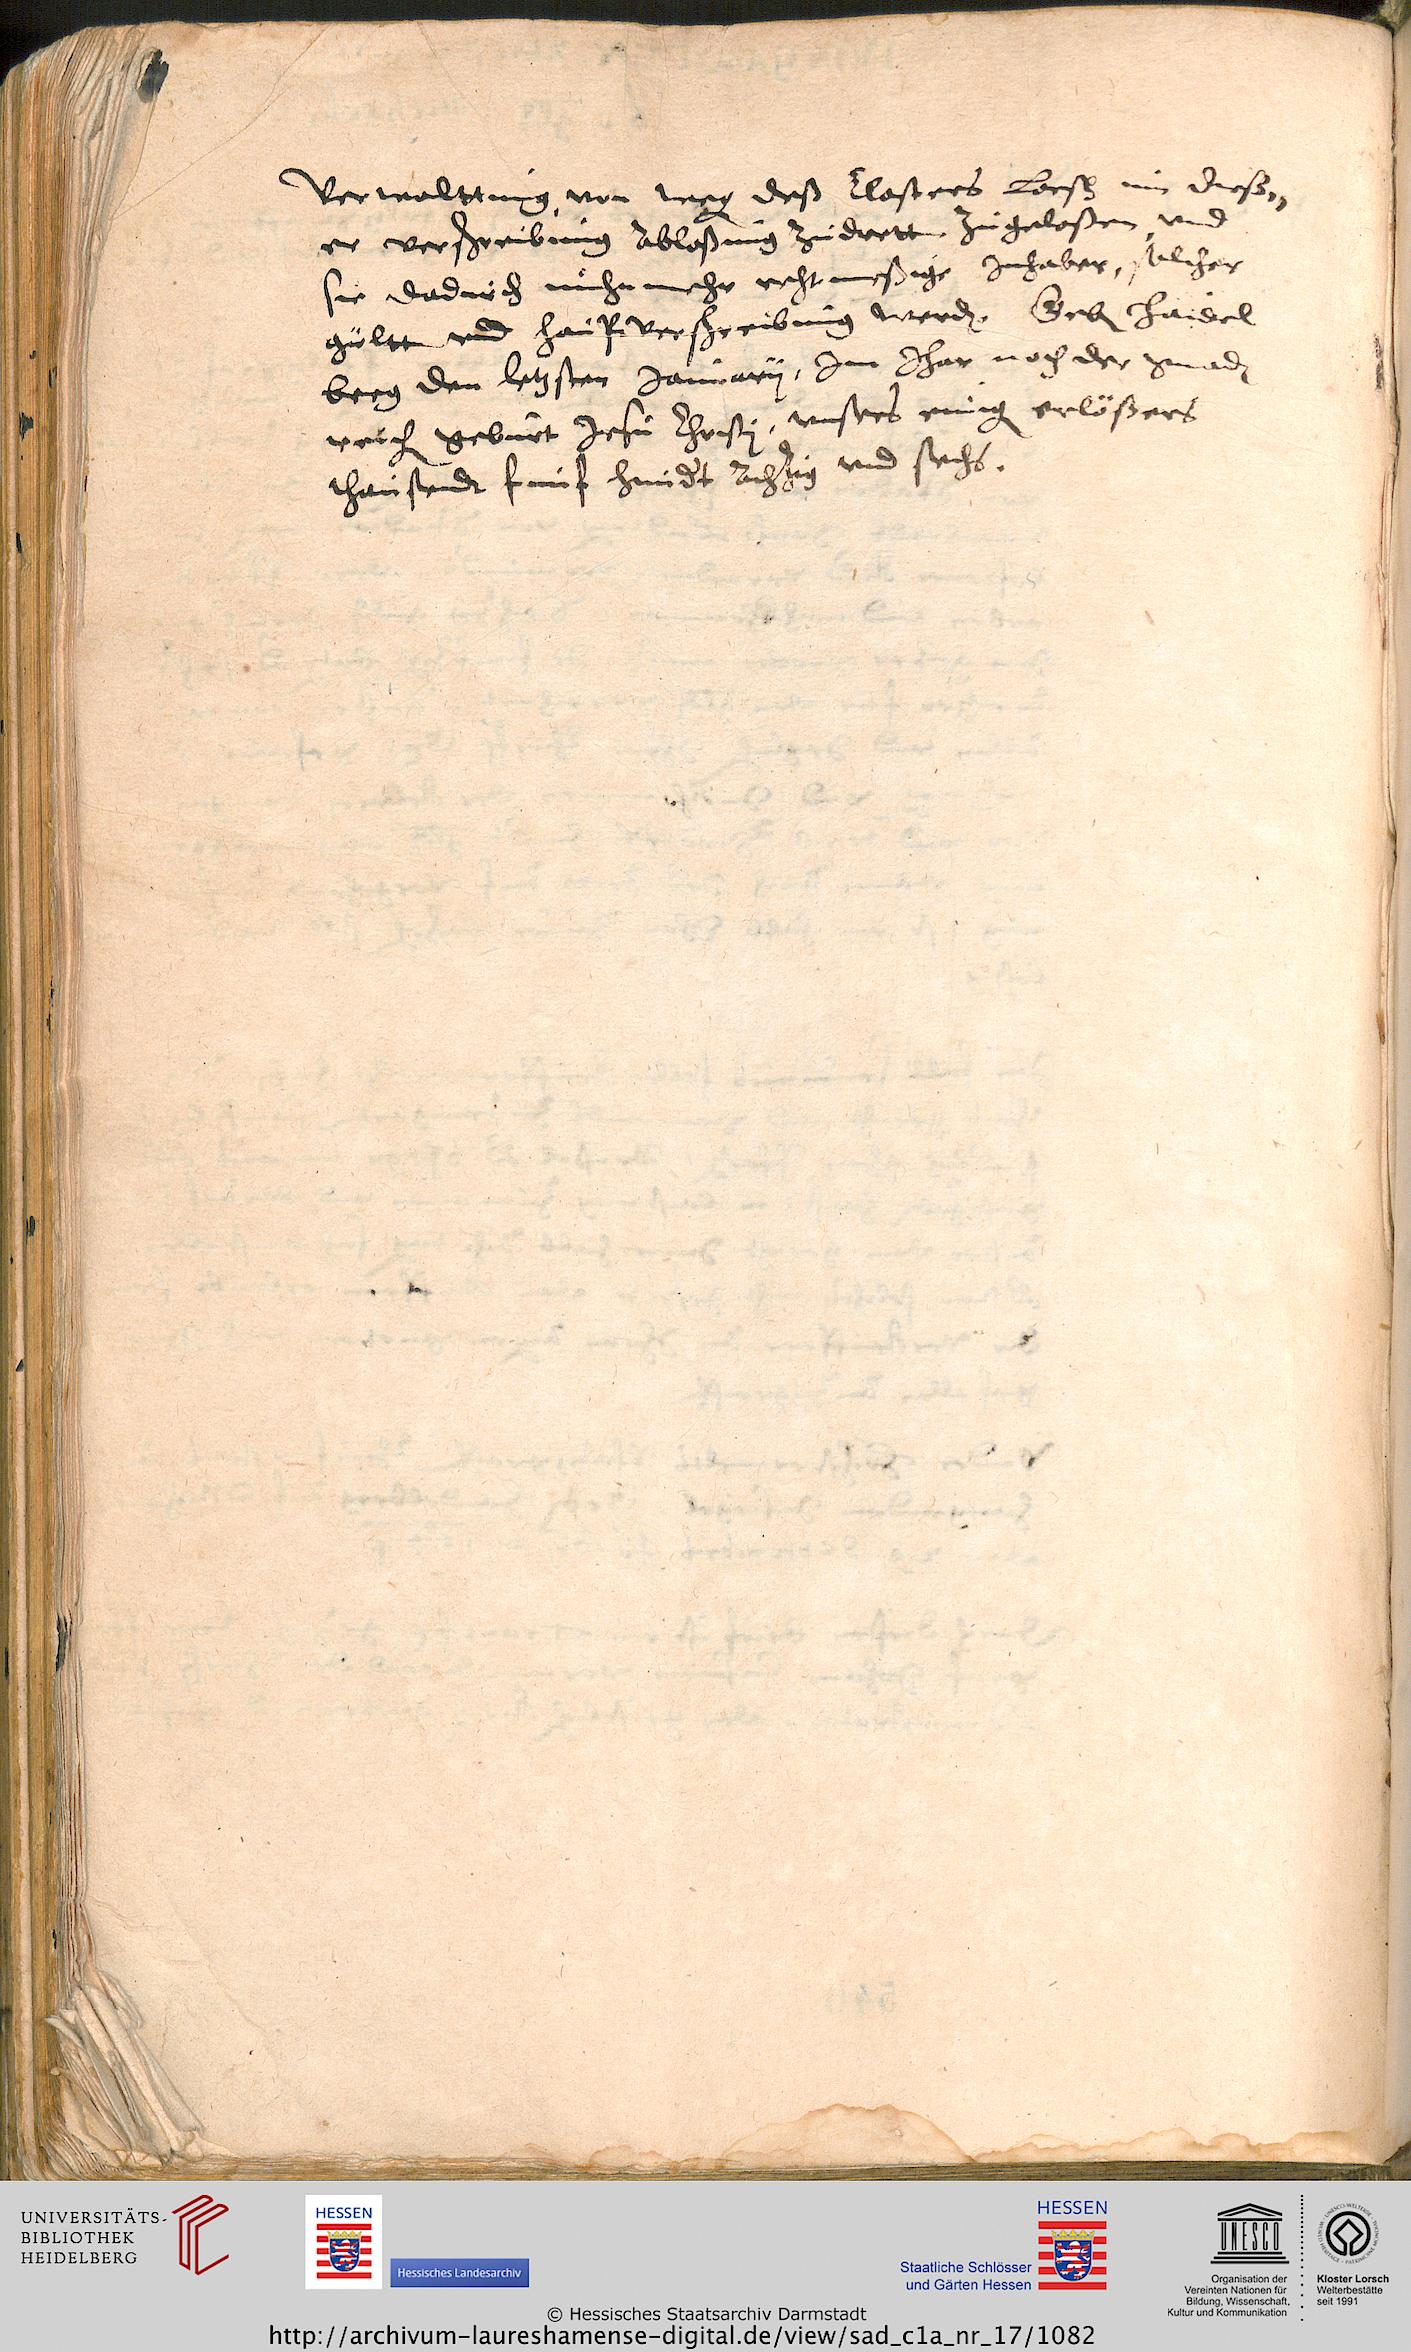 Verwalttung, von weg deß Closters Lorsch in dieß„
er verschreibung Ablaßung Zudrett Zugelaßen, und
sie dadurch nuhnmehr rechtmeßige Inhaber, solcher
gültt und haupt verschreibung werd. Geb Haidel
berg den letzsten January, Im Jhar noch der gnad
reich geburt Jesu Christj, unsers einig erlößers
thausendt funf hundt Achzig und sechs.
UNIVERSITÄTS-
BIBLIOTHEK
HEIDELBERG
HESSEN
Hessisches Landesarchiv
HESSEN
Staatliche Schlösser
und Gärten Hessen
UNESCO
Organisation der
Vereinten Nationen für
Bildung, Wissenschaft,
Kultur und Kommunikation
Kloster Lorsch
Welterbestätte
seit 1991
© Hessisches Staatsarchiv Darmstadt
http://archivum-laureshamense-digital.de/view/sad_c1a_nr_17/1082